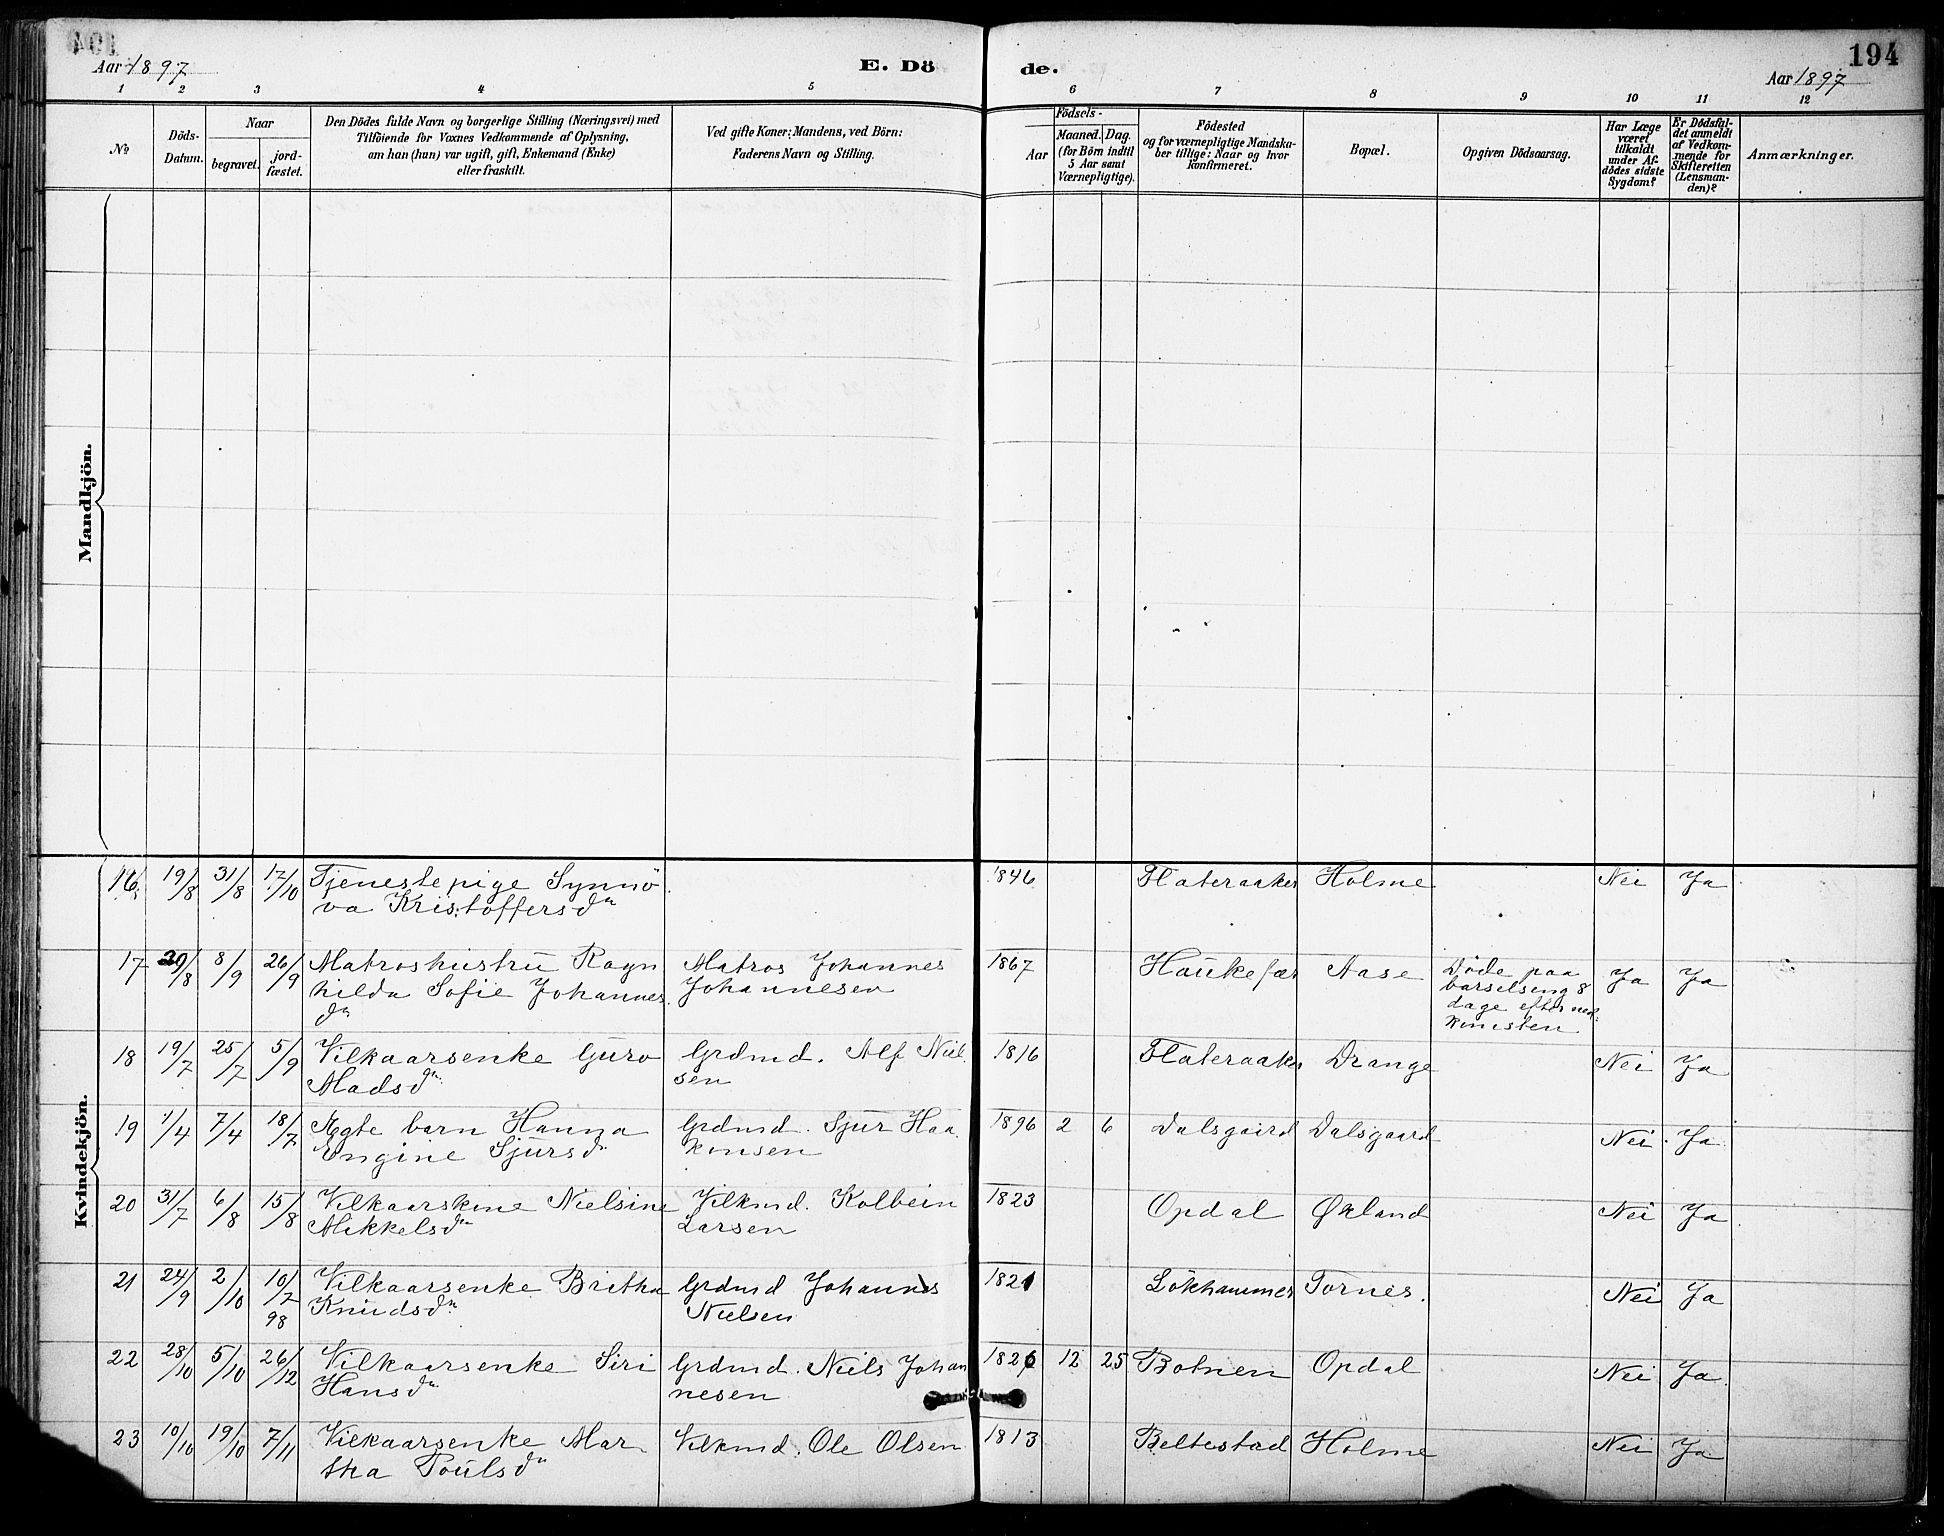 194
Aar 1897
E. Dö
de.
Aar 1897
1 2 3 4 5 6 7 8 9 10 11 12
No
Döds-
Datum.
Naar
begravet.
jord-
fæstet.
Den Dödes fulde Navn og borgerlige Stilling (Næringsvei) med
Tilföiende for Voxnes Vedkommende af Oplysning,
om han (hun) var ugift, gift, Enkemand (Enke)
eller fraskilt.
Ved gifte Koner: Mandens, ved Börn:
Faderens Navn og Stilling.
Födsels-
Aar
Maaned. Dag.
(for Börn indtil
5 Aar samt
Værnepligtige).
Födested
og for værnepligtige Mandska-
ber tillige: Naar og hvor
konfirmeret.
Bopæl.
Opgiven Dödsaarsag.
Har Læge
været
tilkaldt
under Af-
dödes sidste
Sygdom?
Er Dödsfal-
det anmeldt
af Vedkom-
mende for
Skifteretten
(Lensman-
den)?
Anmærkninger.
Mandkjön.
Kvindekjön.
16 19/8 31/8 17/10 Tjenestepige Synnö 1846 Flateraaker Holme Nei Ja
va Kristoffersdn
17 29/8 8/9 26/9 Matroshustru Ragn Matros Johannes 1867 Haukefær Aase Döde paa Ja Ja
hilda Sofie Johannes Johannesen barselseng 8
dn dage efter ned:
komsten
18 19/7 25/7 5/9 Vilkaarsenke Guro Grdmd. Alf Niel 1816 Flateraaker Drange Nei Ja
Madsdn sen
19 1/4 7/4 18/7 Ægte barn Hanna Grdmd. Sjur Haa 1896 2 6 Dalsgaard Dalsgaard Nei Ja
Engine Sjursdn konsen
20 31/7 6/8 15/8 Vilkaarskone Nielsine Vilkmd. Kolbein 1823 Opdal Økland Nei Ja
Mikkelsdn Larsen
21 24/9 2/10 10/7 98 Vilkaarsenke Britha Grdmd Johannes 1821 Lökhammer Tornes. Nei Ja
Knudsdn Nielsen
22 28/10 5/10 26/12 Vilkaarsenke Siri Grdmd. Niels Johan 1826 12 25 Botnen Opdal Nei Ja
Hansdn nesen
23 10/10 19/10 7/11 Vilkaarsenke Mar Vilkmd. Ole Olsen 1813 Beltestad Holme Nei Ja
tha Poulsdn